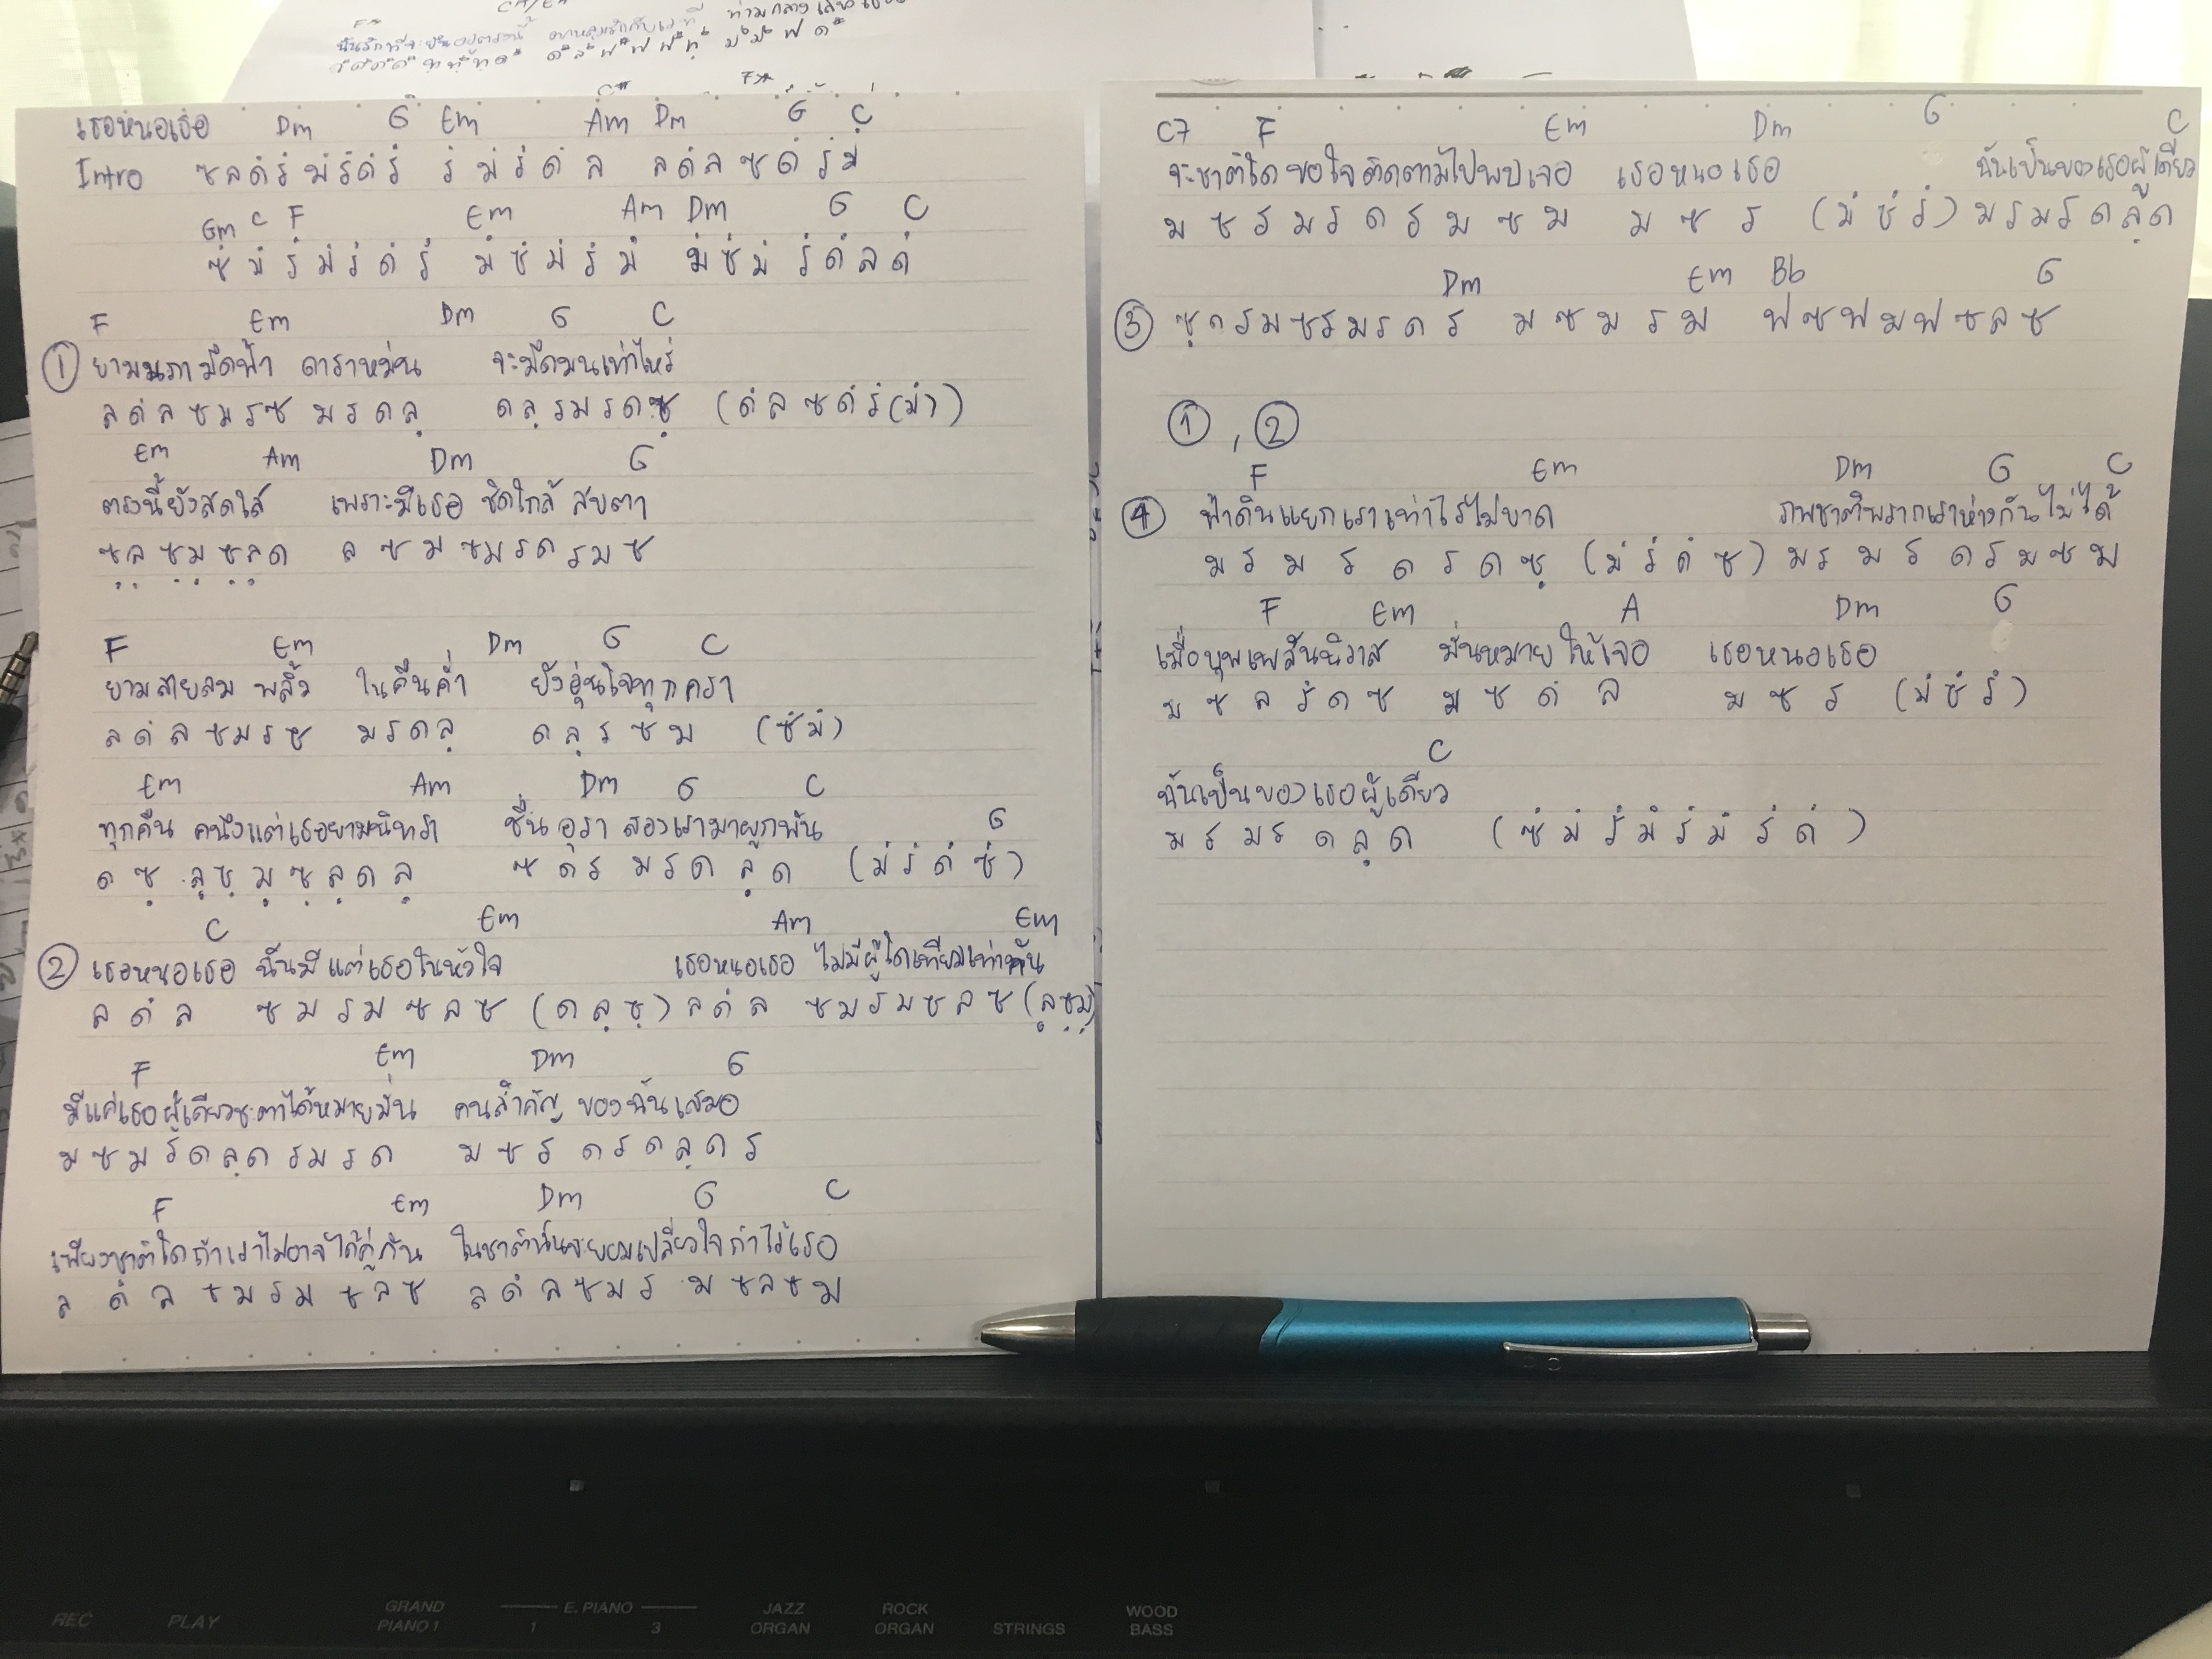 เธอหนอเธอ Dm G Em Am Dm G C
Intro ซ ล ดํ รํ มํ รํ ดํ รํ รํ มํ รํ ดํ ล ล ดํ ล ซ ดํ รํ มํ
Gm C F Em Am Dm G C
ซํ มํ รํ มํ รํ ดํ รํ มํ ซํ มํ รํ มํ มํ ซํ มํ รํ ดํ ล ดํ
F Em Dm G C
① ยามนภามืดฟ้า ดาราหม่น จะมืดมนเท่าไหร่
ล ดํ ล ซ ม ร ซ ม ร ด ลฺ ด ลฺ ร ม ร ด ซฺ (ดํ ล ซ ดํ รํ (มํ))
Em Am Dm G
ตรงนี้ยังสดใส เพราะมีเธอ ชิดใกล้ สบตา
ซฺ ลฺ ซฺ มฺ ซฺ ลฺ ด ล ซ ม ซ ม ร ด ร ม ซ
F Em Dm G C
ยามสายลม พลิ้ว ในคืนค่ำ ยังอุ่นใจทุกครา
ล ดํ ล ซ ม ร ซ ม ร ด ลฺ ด ลฺ ร ซ ม (ซํ มํ)
Em Am Dm G C
ทุกคืน คนึงแต่เธอยามนิทรา ชื่นอุรา สองเรามาผูกพัน G
ด ซฺ ลฺ ซฺ มฺ ซฺ ลฺ ด ลฺ ซ ด ร ม ร ด ลฺ ด (มํ รํ ดํ ซํ)
C Em Am Em
② เธอหนอเธอ ฉันมีแต่เธอในหัวใจ เธอหนอเธอ ไม่มีผู้ใดเทียมเท่าทัน
ล ดํ ล ซ ม ร ม ซ ล ซ (ด ลฺ ซฺ) ล ดํ ล ซ ม ร ม ซ ล ซ (ลฺ ซฺ มฺ)
F Em Dm G
มีแค่เธอผู้เดียวชะตาได้หมายมั่น คนสำคัญ ของฉันเสมอ
ม ซ ม ร ด ลฺ ด ร ม ร ด ม ซ ร ด ร ด ลฺ ด ร
F Em Dm G C
เพียงชาติใดถ้าเราไม่อาจได้คู่กัน ในชาตินั้นจะยอมเปลี่ยวใจถ้าไร้เธอ
ล ดํ ล ซ ม ร ม ซ ล ซ ล ดํ ล ซ ม ร ม ซ ล ซ ม
C7 F Em Dm G C
จะชาติใดขอใจติดตามไปพบเจอ เธอหนอเธอ ฉันเป็นของเธอผู้เดียว
ม ซ ร ม ร ด ร ม ซ ม ม ซ ร (มํ ซํ รํ) ม ร ม ร ด ลฺ ด
Dm Em Bb G
③ ซฺ ด ร ม ซ ร ม ร ด ร ม ซ ม ร ม ฟ ซ ฟ ม ฟ ซ ล ซ
① , ②
F Em Dm G C
④ ฟ้าดินแยกเราเท่าไรไม่ขาด ภพชาติพรากเราห่างกันไม่ได้
ม ร ม ร ด ร ด ซฺ (มํ รํ ดํ ซ) ม ร ม ร ด ร ม ซ ม
F Em A Dm G
เมื่อบุพเพสันนิวาส มั่นหมายให้เจอ เธอหนอเธอ
ม ซ ล รํ ด ซ ม ซ ดํ ล ม ซ ร (มํ ซํ รํ)
C
ฉันเป็นของเธอผู้เดียว
ม ร ม ร ด ลฺ ด (ซํ มํ รํ มํ รํ มํ รํ ดํ)
REC PLAY GRAND PIANO 1 E. PIANO 1 3 JAZZ ORGAN ROCK ORGAN STRINGS WOOD BASS